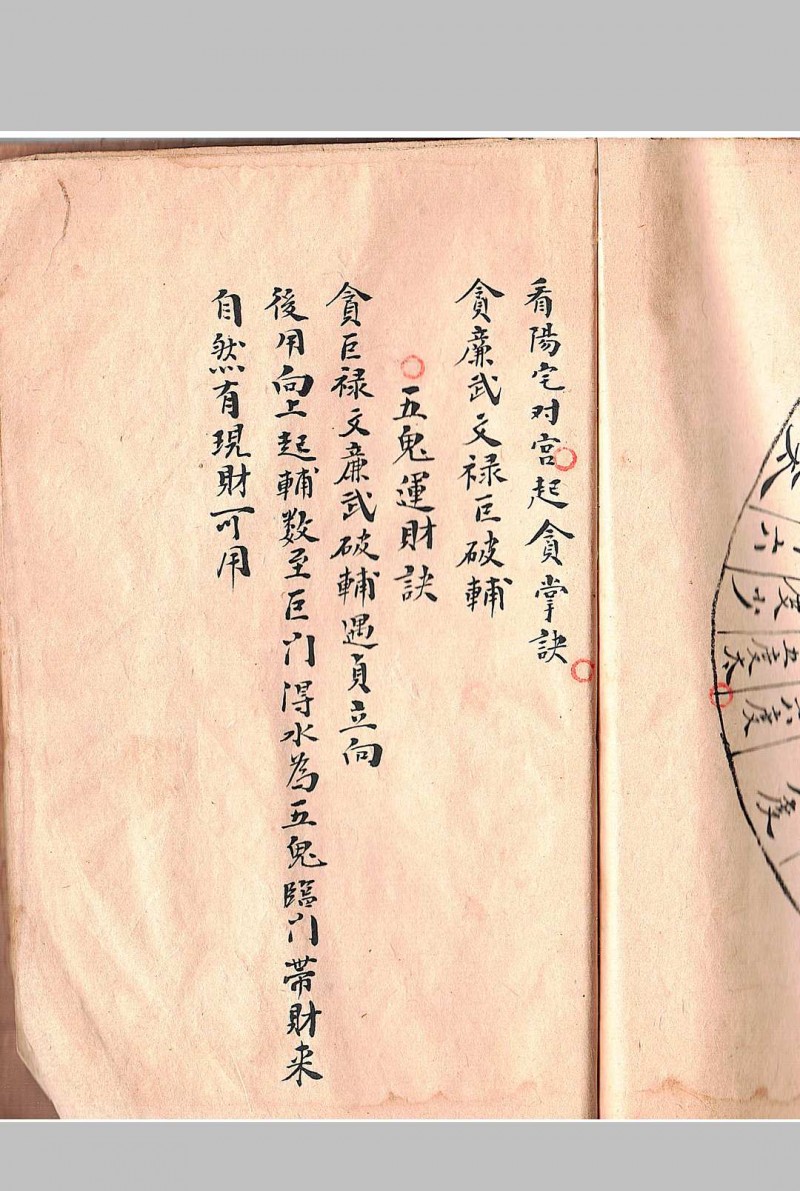 看陽宅对宮起貪掌訣
貪廉武文禄巨破輔
五鬼運財訣
貪巨禄文廉武破輔遇貞立向
後用向上起輔数至巨门得水為五鬼臨门帯財来
自然有現財可用
六
度少
五度太
六度
度